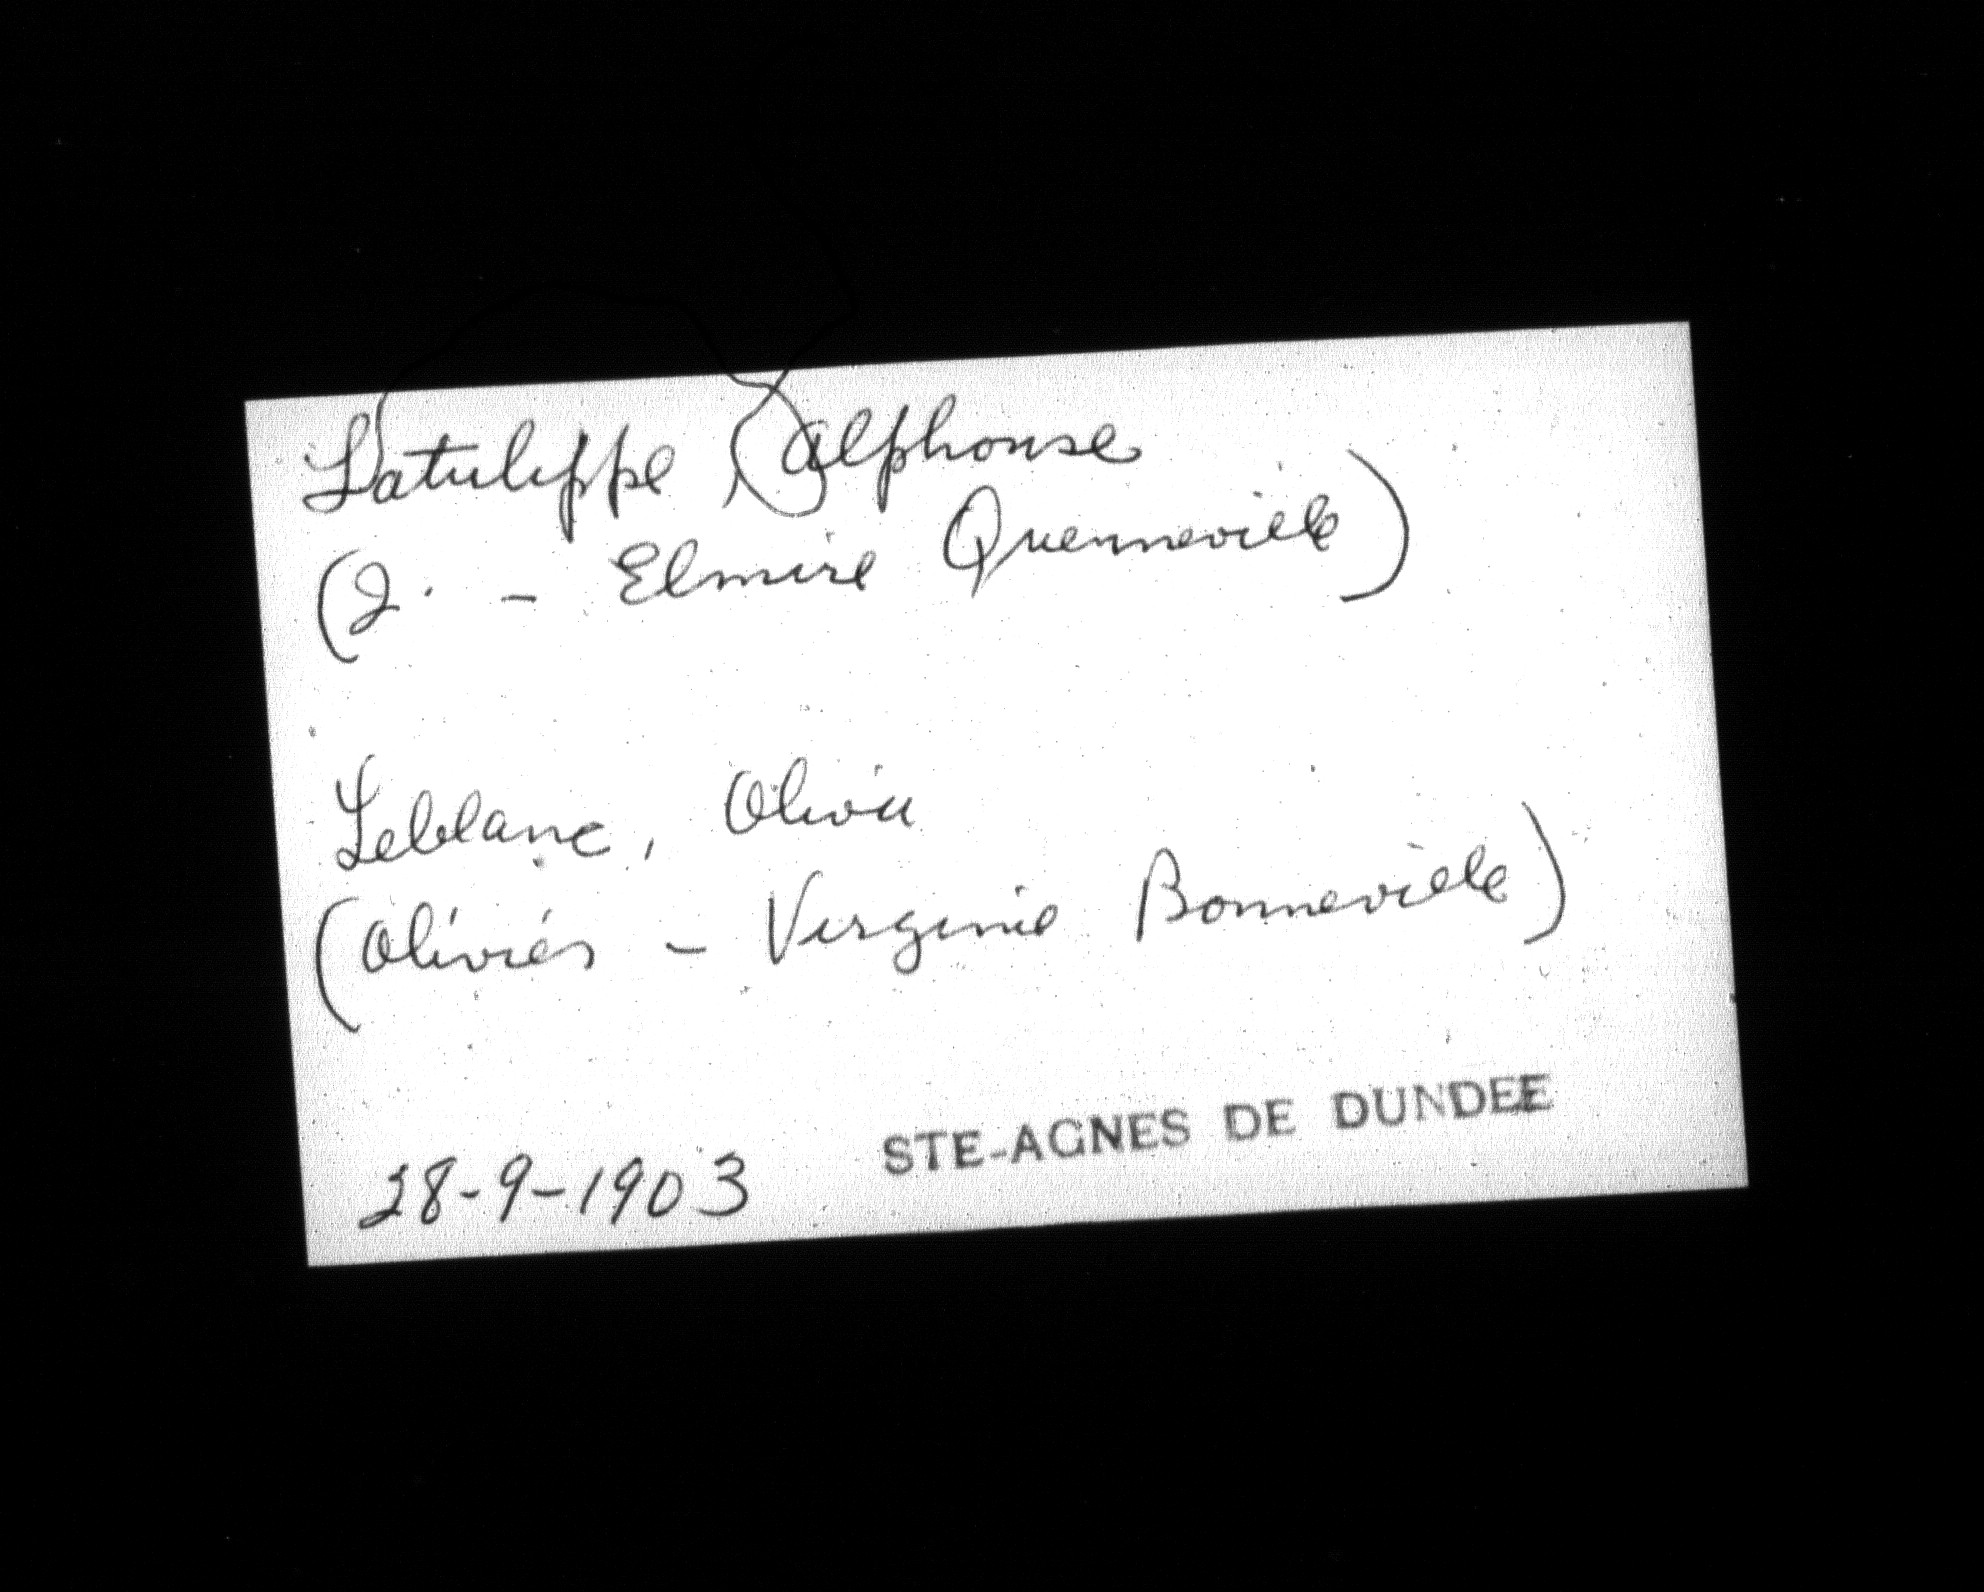 Latulippe, Alphonse
(J. - Elmire Quenneville)
Leblanc, Oliva
(Olivier - Virginie Bonneville)
28-9-1903 STE-AGNES DE DUNDEE